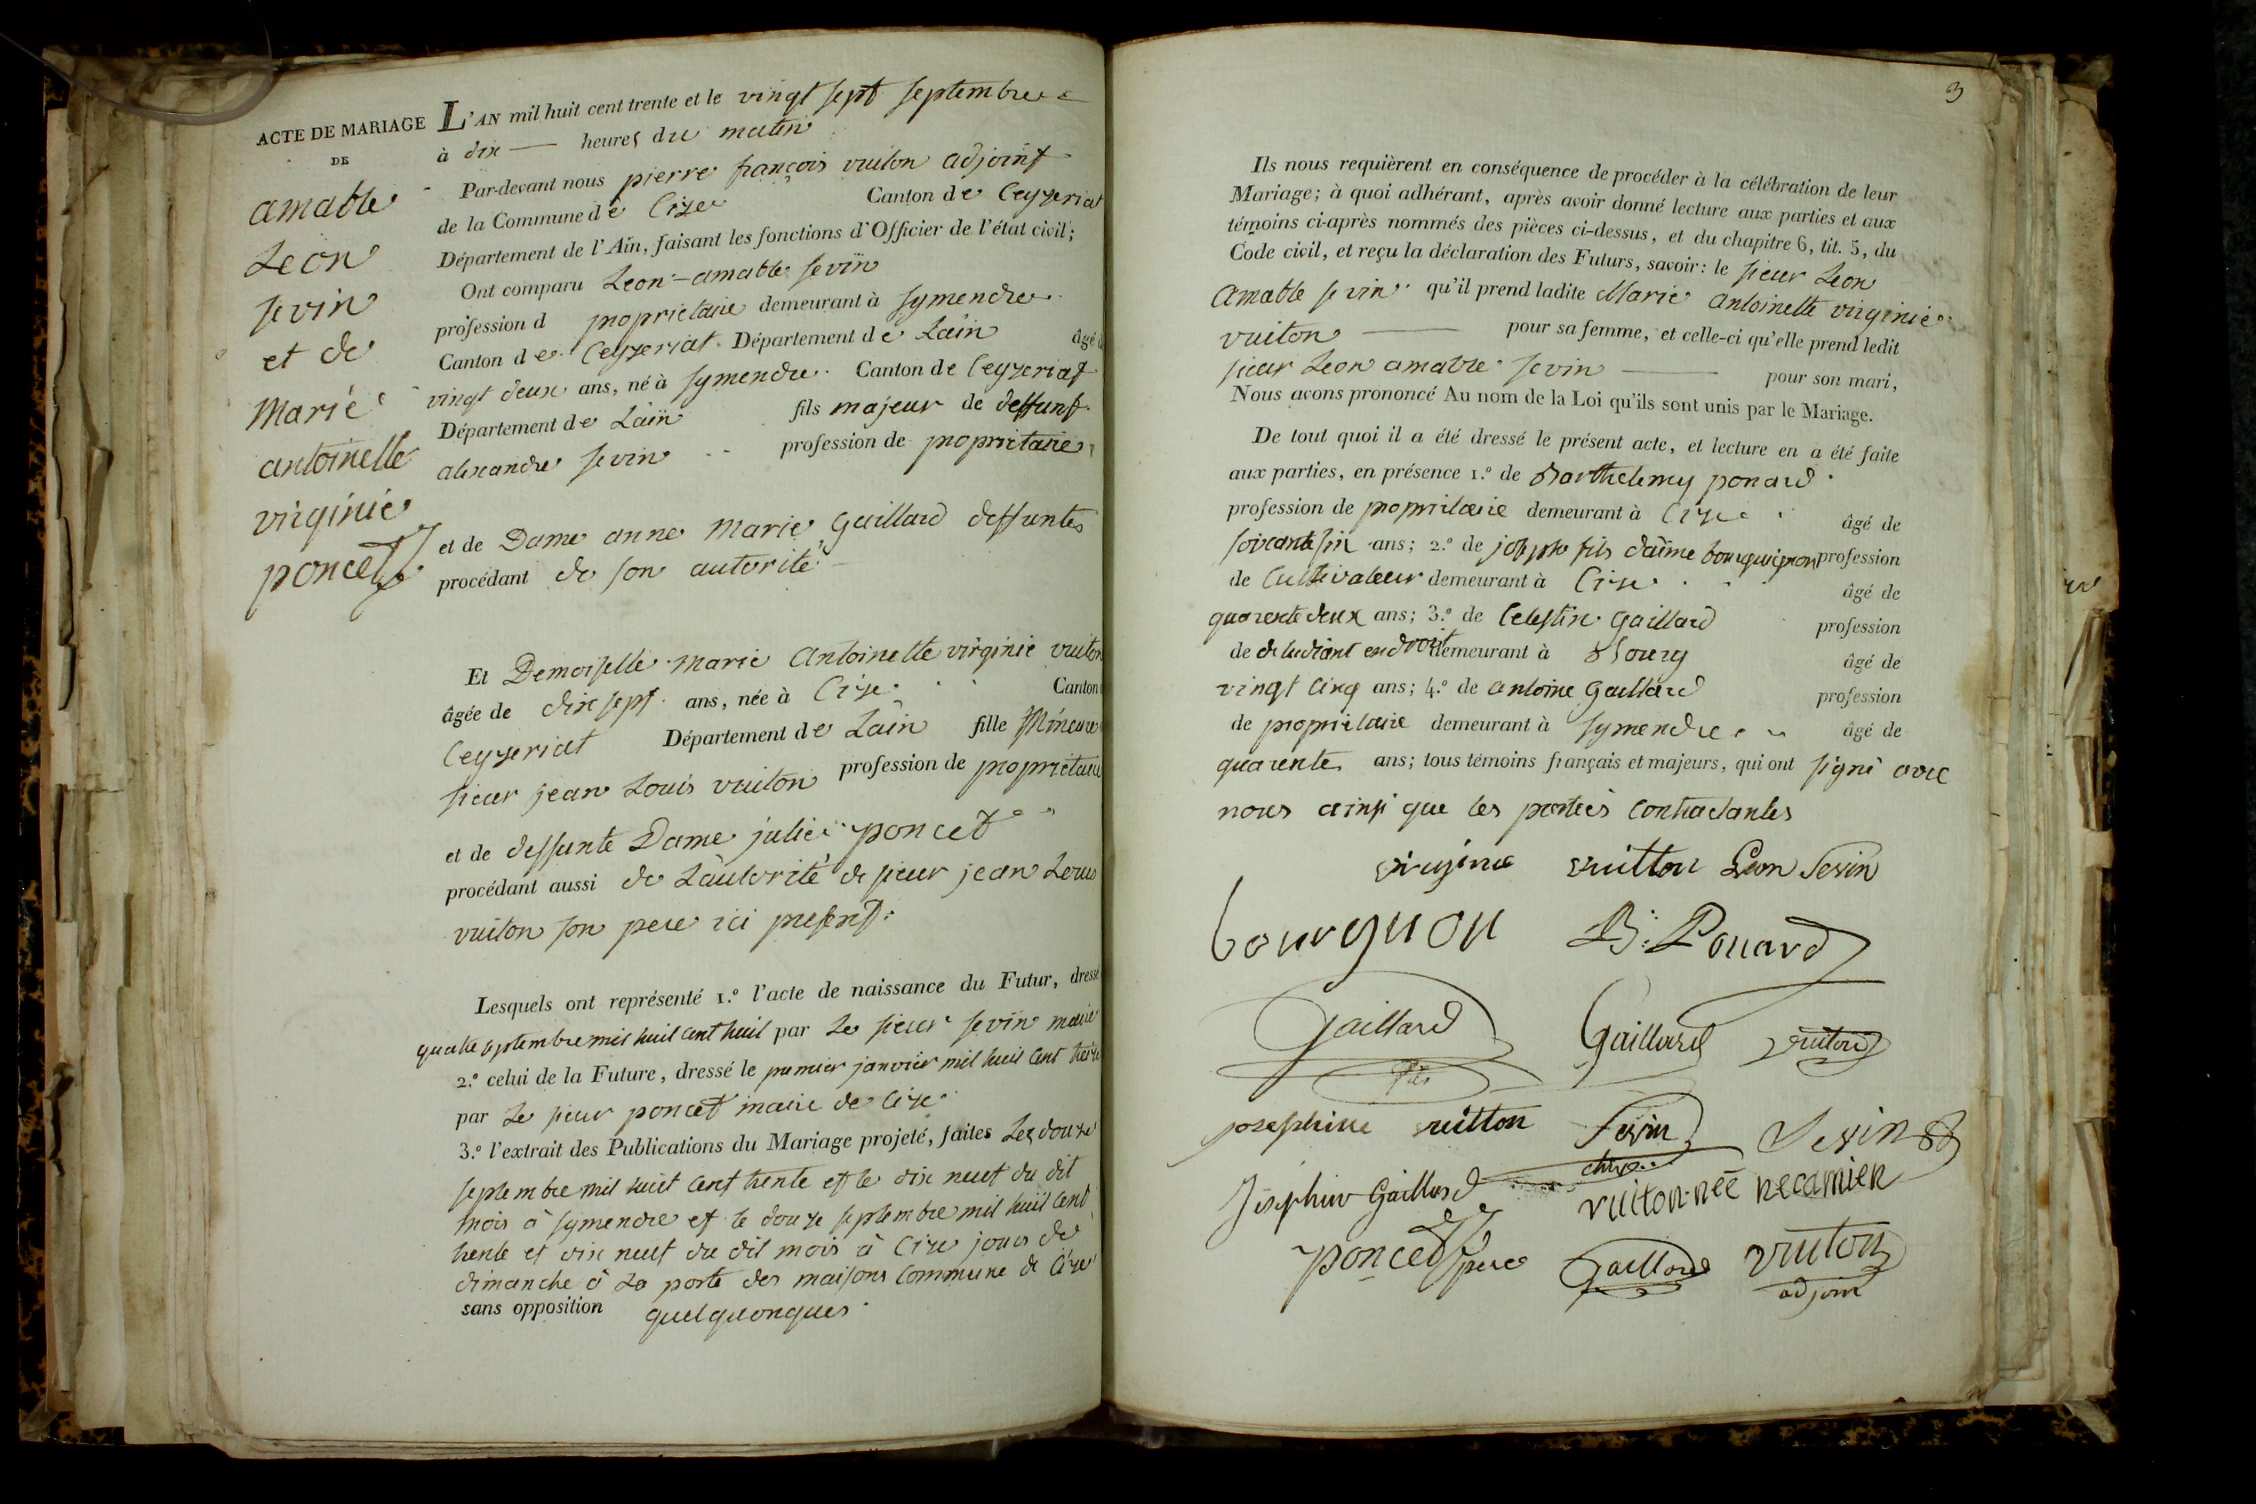 ACTE DE MARIAGE
DE
amable
Leon
sevin
et de
Marie
antoinette
virginie
poncet
L'AN mil huit cent trente et le vingt sept septembre
à dix — heures du matin
Par-devant nous pierre françois vuiton adjoint
de la Commune de Cize Canton de Ceyzeriat
Département de l'Ain, faisant les fonctions d'Officier de l'état civil;
Ont comparu Leon-amable sevin
profession d propriétaire demeurant à symendre
Canton de Ceyzeriat Département de Lain âgé d
vingt deux ans, né à symendre Canton de Ceyzeriat
Département de Lain fils majeur de deffunt
alexandre sevin profession de propriétaire
et de Dame anne Marie Gaillard deffuntes
procédant de son autorité
Et Demoiselle Marie Antoinette virginie vuiton
âgée de dix sept ans, née à Cize Canton
Ceyzeriat Département de Lain fille Mineure
sieur jean Louis vuiton profession de propriétaire
et de deffunte Dame julie poncet
procédant aussi de Lautorité de sieur jean Louis
vuiton son pere ici present
Lesquels ont représenté 1.º l'acte de naissance du Futur, dressé
quatre septembre mil huit cent huit par Le sieur sevin maire
2.º celui de la Future, dressé le premier janvier mil huit cent treize
par Le sieur poncet maire de Cize
3.º l'extrait des Publications du Mariage projeté, faites Les douze
septembre mil huit cent trente et le dix neuf du dit
mois à symendre et le douze septembre mil huit cent
trente et dix neuf du dit mois à Cize jours de
dimanche à La porte des maisons Commune de Cize
sans opposition quelquonques
3
Ils nous requièrent en conséquence de procéder à la célébration de leur
Mariage; à quoi adhérant, après avoir donné lecture aux parties et aux
témoins ci-après nommés des pièces ci-dessus, et du chapitre 6, tit. 5, du
Code civil, et reçu la déclaration des Futurs, savoir: le sieur Leon
Amable sevin qu'il prend ladite Marie Antoinette virginie
vuiton — pour sa femme, et celle-ci qu'elle prend ledit
sieur Leon amable sevin — pour son mari,
Nous avons prononcé Au nom de la Loi qu'ils sont unis par le Mariage.
De tout quoi il a été dressé le présent acte, et lecture en a été faite
aux parties, en présence 1.º de Barthelemy ponard
profession de propriétaire demeurant à Cize âgé de
soixante six ans; 2.º de joseph fils daime bourguignon profession
de Cultivateur demeurant à Cize âgé de
quarente deux ans; 3.º de Celestin Gaillard profession
de detudiant en droit demeurant à Bourg âgé de
vingt cinq ans; 4.º de antoine Gaillard profession
de propriétaire demeurant à symendre âgé de
quarente ans; tous témoins français et majeurs, qui ont signé avec
nous ainsi que les parties contractantes
virginie vuitton Leon Sevin
bourgnon B: Ponard
Gaillard Gaillard vuiton
fils
josephine vuitton Sevin Sevin
Joséphine Gaillard vuiton née recamier
poncet pere Gaillard vuiton
adjoint